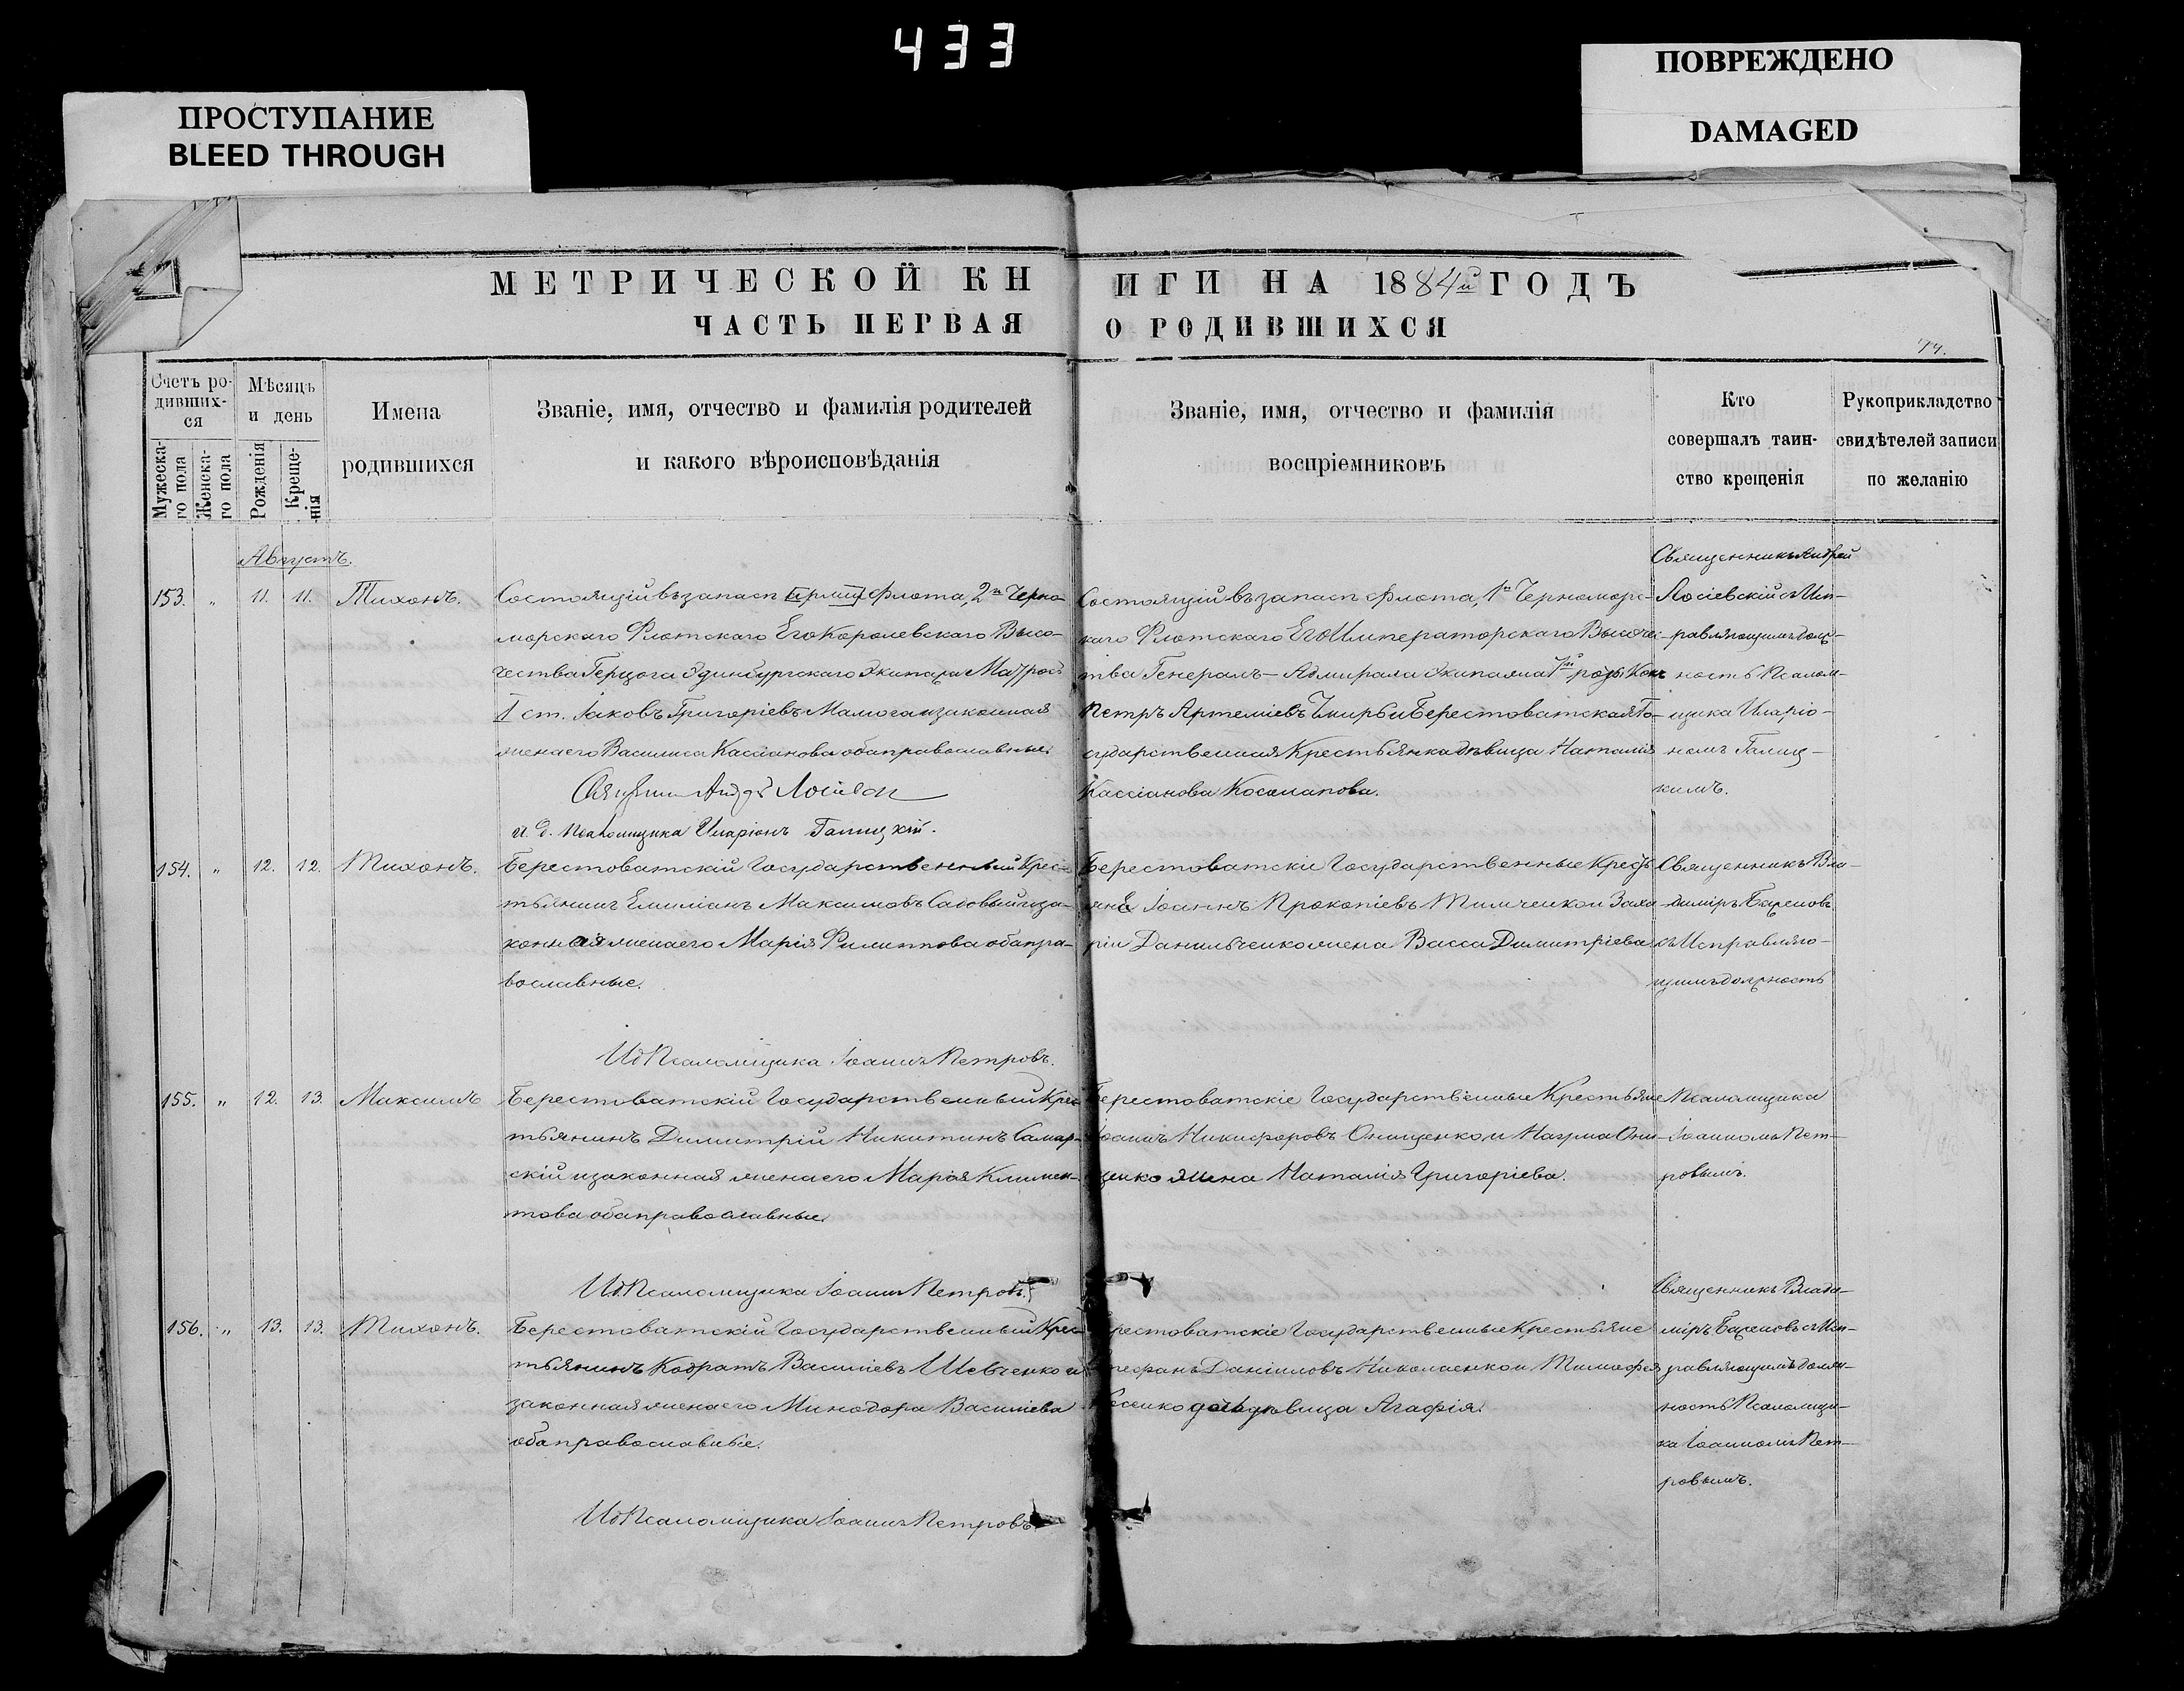 433
ПРОСТУПАНИЕ
BLEED THROUGH
ПОВРЕЖДЕНО
DAMAGED
МЕТРИЧЕСКОЙ КНИГИ НА 1884й ГОДЪ
ЧАСТЬ ПЕРВАЯ О РОДИВШИХСЯ
Счетъ ро-
дивших-
ся
Мужеска-
го пола
Женска-
го пола
Мѣсяцъ
и день
Рожденія
Креще-
нія
Имена
родившихся
Званіе, имя, отчество и фамилія родителей
и какого вѣроисповѣданія
Званіе, имя, отчество и фамилія
воспріемниковъ
Кто
совершалъ таин-
ство крещенія
Рукоприкладство
свидѣтелей записи
по желанію
Августъ.
153. " 11. 11. Тихонъ.
Состоящій въ запасѣ флота, 2го Черно-
морскаго Флотскаго Его Королевскаго Высо-
чества Герцога Эдинбургскаго Экипажа Матросъ
1 ст. Іаковъ Григоріевъ и законная
жена его Василиса Кассіанова оба православные.
и. д. Псаломщика Иларіонъ Галицкій.
Состоящій въ запасѣ Флота, 1го Черноморс-
каго Флотскаго Его Императорскаго Высочес-
тва Генералъ-Адмирала Экипажа
Петръ Артеміевъ и Берестоватская Го-
сударственная Крестьянка дѣвица Наталія
Кассіанова
Священникъ Андрей
Лосіевскій съ Исп-
равляющимъ долж-
ность Псалом-
щика Иларіо-
номъ Галиц-
кимъ.
154. " 12. 12. Тихонъ.
Берестоватскій Государственный Крес-
тьянинъ Емиліанъ Максимовъ Садовый и за-
конная жена его Марія Филиппова оба пра-
вославные.
ИдПсаломщика Іоаннъ Петровъ.
Берестоватскіе Государственные Кресть
яне Іоаннъ Прокопіевъ Тимченко и Заха
ріи Данильченко жена Васса Димитріева
Священникъ Вла-
диміръ
съ Исправляю-
щимъ должность
155. " 12. 13. Максимъ
Берестоватскій Государственный Крес
тьянинъ Димитрій Никитинъ Самар-
скій и законная жена его Марія Климен-
това оба православные.
ИдПсаломщика Іоаннъ Петровъ.
Берестоватскіе Государственные Крестьяне
Іоаннъ Никифоровъ Онищенко и Наума Они-
щенко жена Наталія Григоріева.
Псаломщика
Іоанномъ Пет-
ровымъ.
156. " 13. 13. Тихонъ.
Берестоватскій Государственный Крес
тьянинъ Кодратъ Василіевъ Шевченко и
законная жена его Минодора Василіева
оба православные.
ИдПсаломщика Іоаннъ Петровъ.
рестоватскіе Государственные Крестьяне
тефанъ Даніиловъ Николаенко и Тимофея
дочь дѣвица Агафія.
Священникъ Влади-
міръ съ Исп-
равляющимъ долж-
ность Псаломщи-
ка Іоанномъ Пет-
ровымъ.